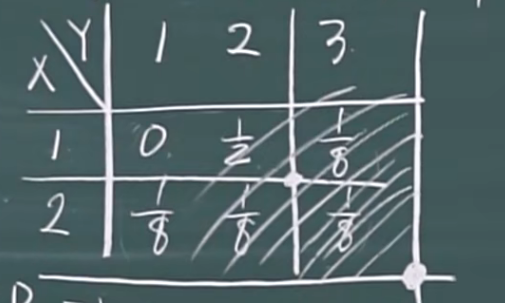 X\Y 1 2 3
1 0 1/2 1/8
2 1/8 1/8 1/8